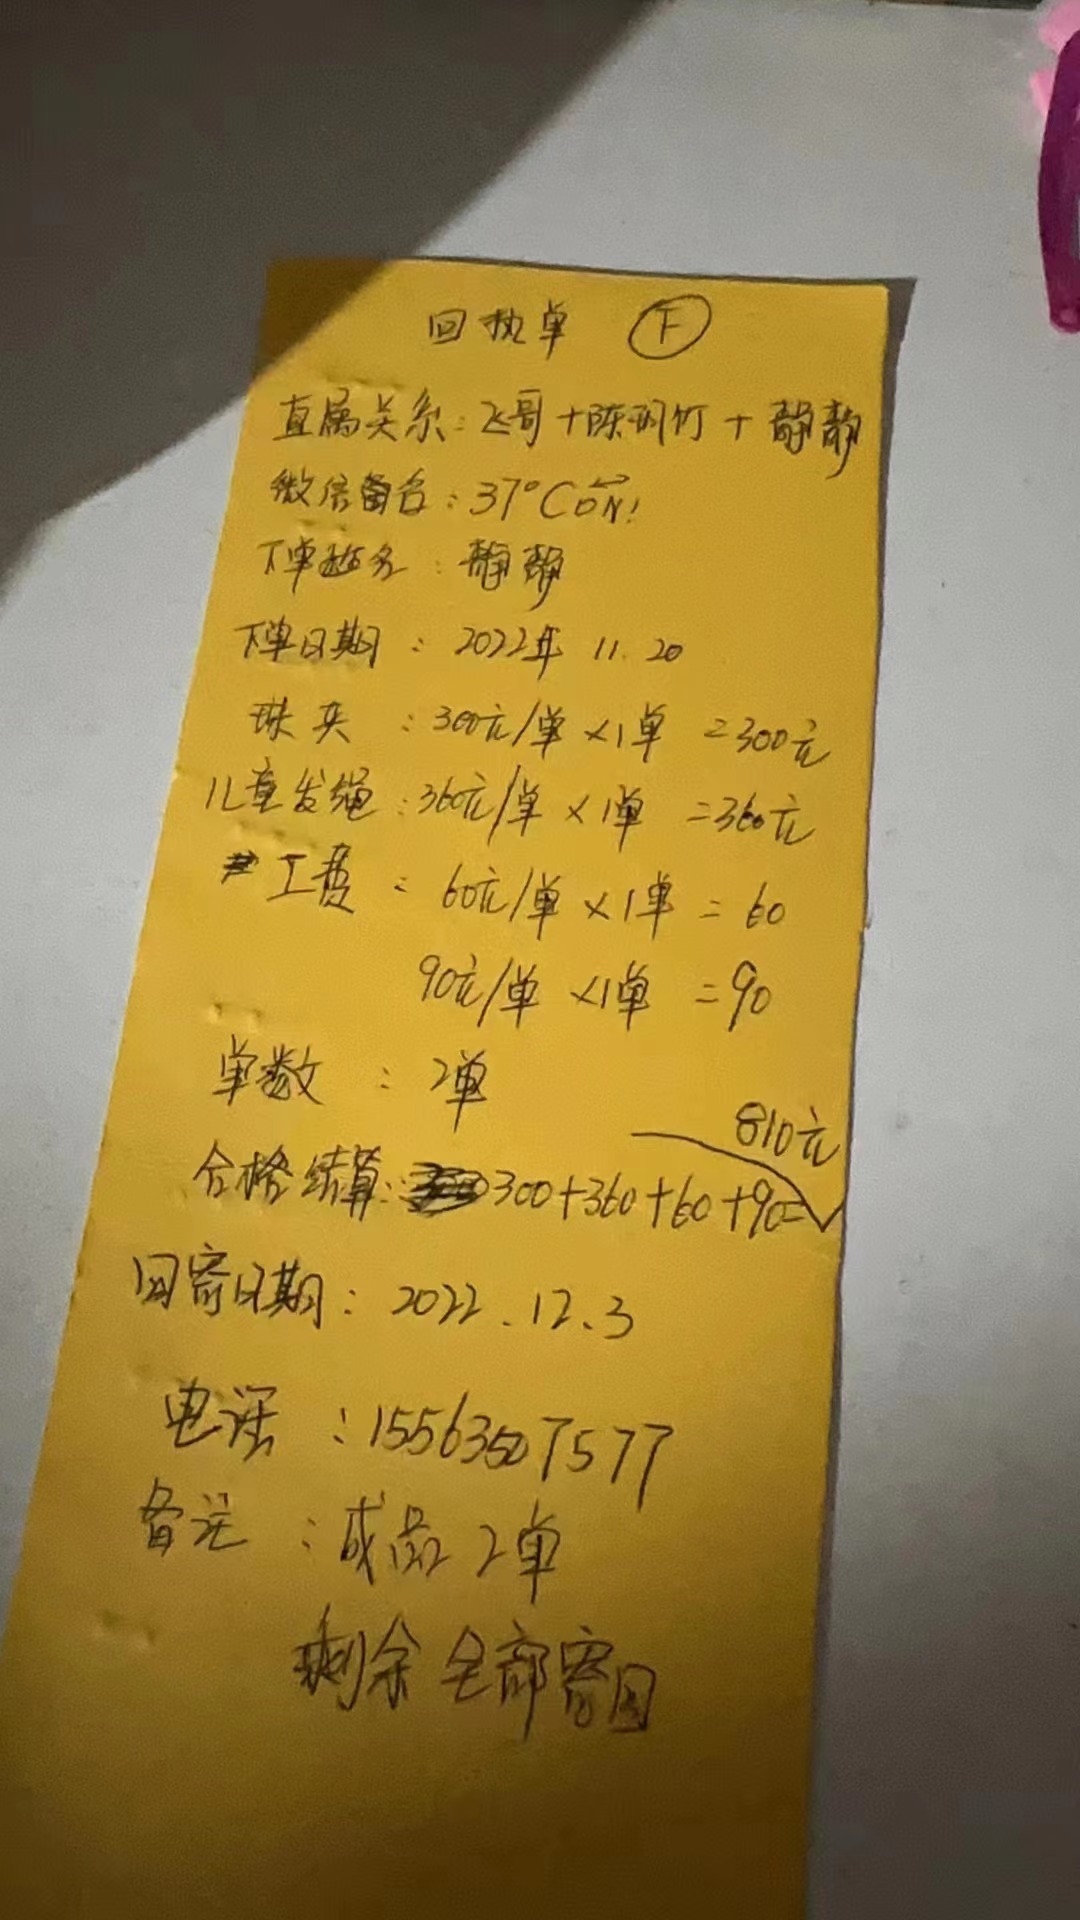 回执单 F
直属关系：飞哥+陈 竹+静静
微信备名：37°C
下单姓名：静静
下单日期：2022年11.20
珠夹：300元/单×1单=300元
儿童发绳：360元/单×1单=360元
工费：60元/单×1单=60
90元/单×1单=90
单数：2单
810元
合格结算：300+360+60+90=
回寄日期：2022.12.3
电话：15563507577
备注：成品2单
剩余全部寄回